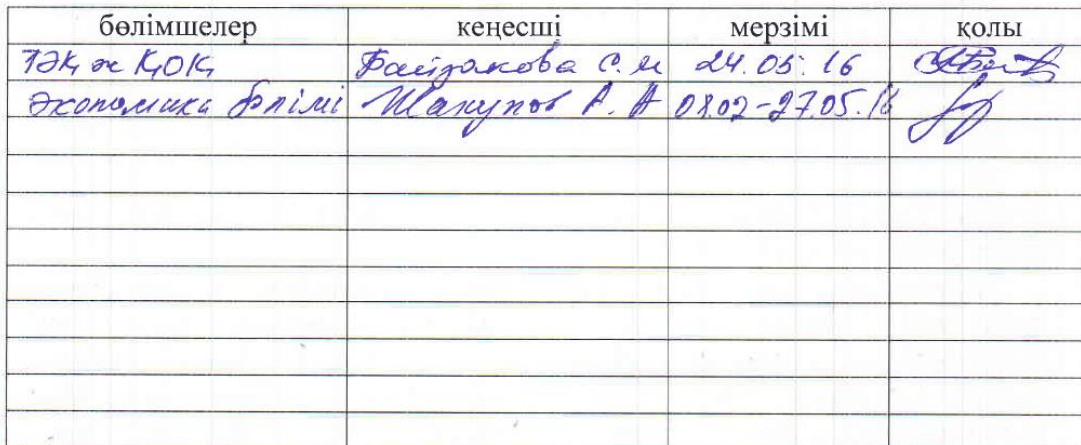 бөлімшелер кеңесші мерзімі қолы
ТӘҚ ж ҚОҚ Байзакова С.М 24.05.16
Экономика бөлімі Жакупов А.А 08.02-27.05.16